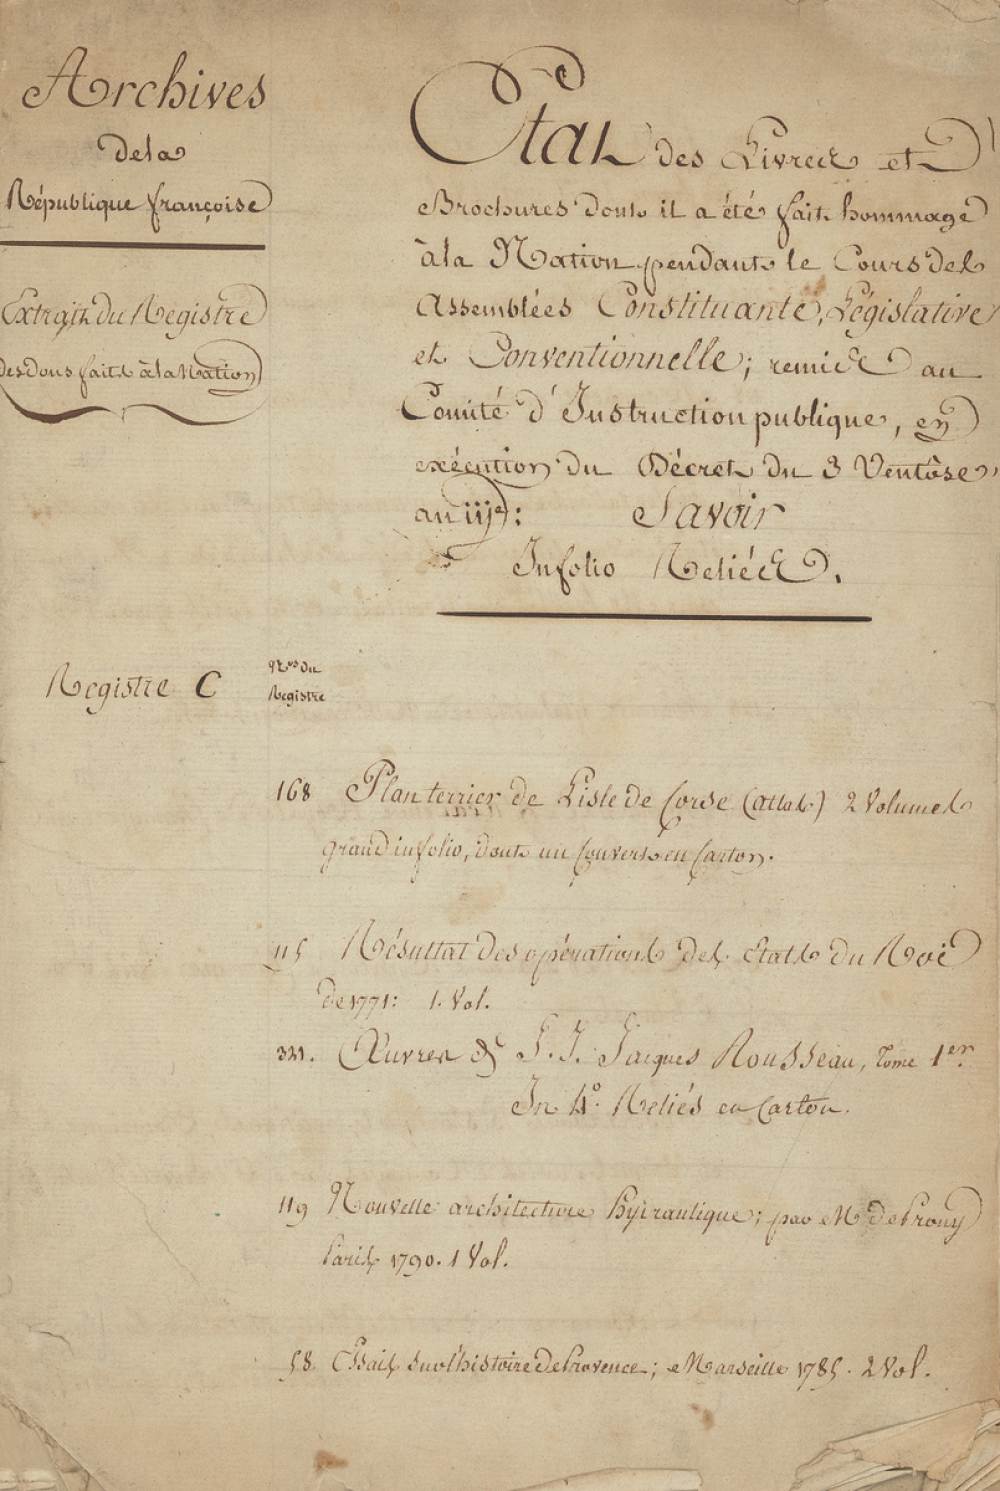 Archives
de la
République françoise
Extrait du Registre
des dons faits à la Nation
Etat des Livres et
Brochures dont il a été fait hommage
à la Nation pendant le Cours des
Assemblées Constituante, Législative
et Conventionnelle; remis au
Comité d'Instruction publique, en
exécution du Décret du 3 Ventôse
an iije: Savoir
Infolio Reliés.
Registre C
Nos du
Registre
168 Plan terrier de Lisle de Corse (atlas) 2 Volumes
grand infolio, dont un Couvert en Carton.
115 Résultat des opérations des Etats du Roi
de 1771: 1. Vol.
321. Œuvres de J. J. Jacques Rousseau, Tome 1er
In 4o. Reliés en Carton.
119 Nouvelle architecture hydraulique; par M de Prony
Paris 1790. 1 Vol.
58. Essais sur l'histoire de Provence; Marseille 1785. 2 Vol.